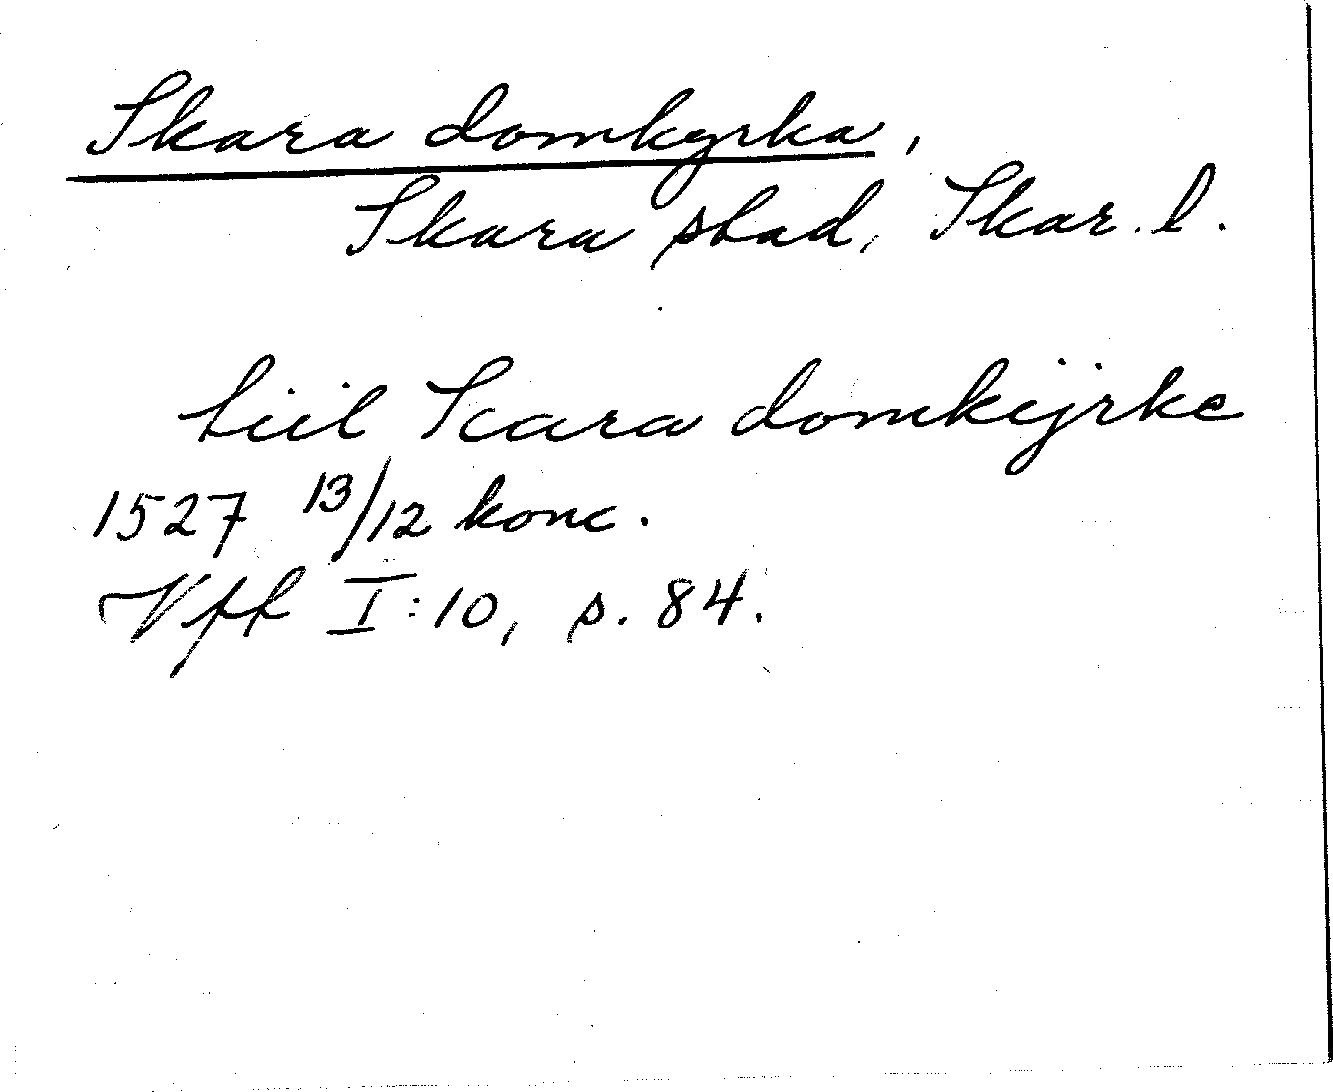 Skara domkyrka,
Skara stad, Skar. l.
tiil Scara domkijrke
1527 13/12 konc.
Vff I:10, s. 84.